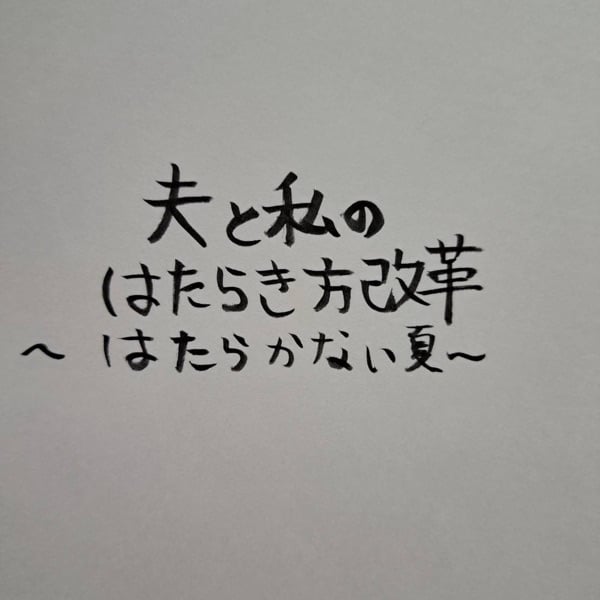 夫と私の
はたらき方改革
～はたらかない夏～